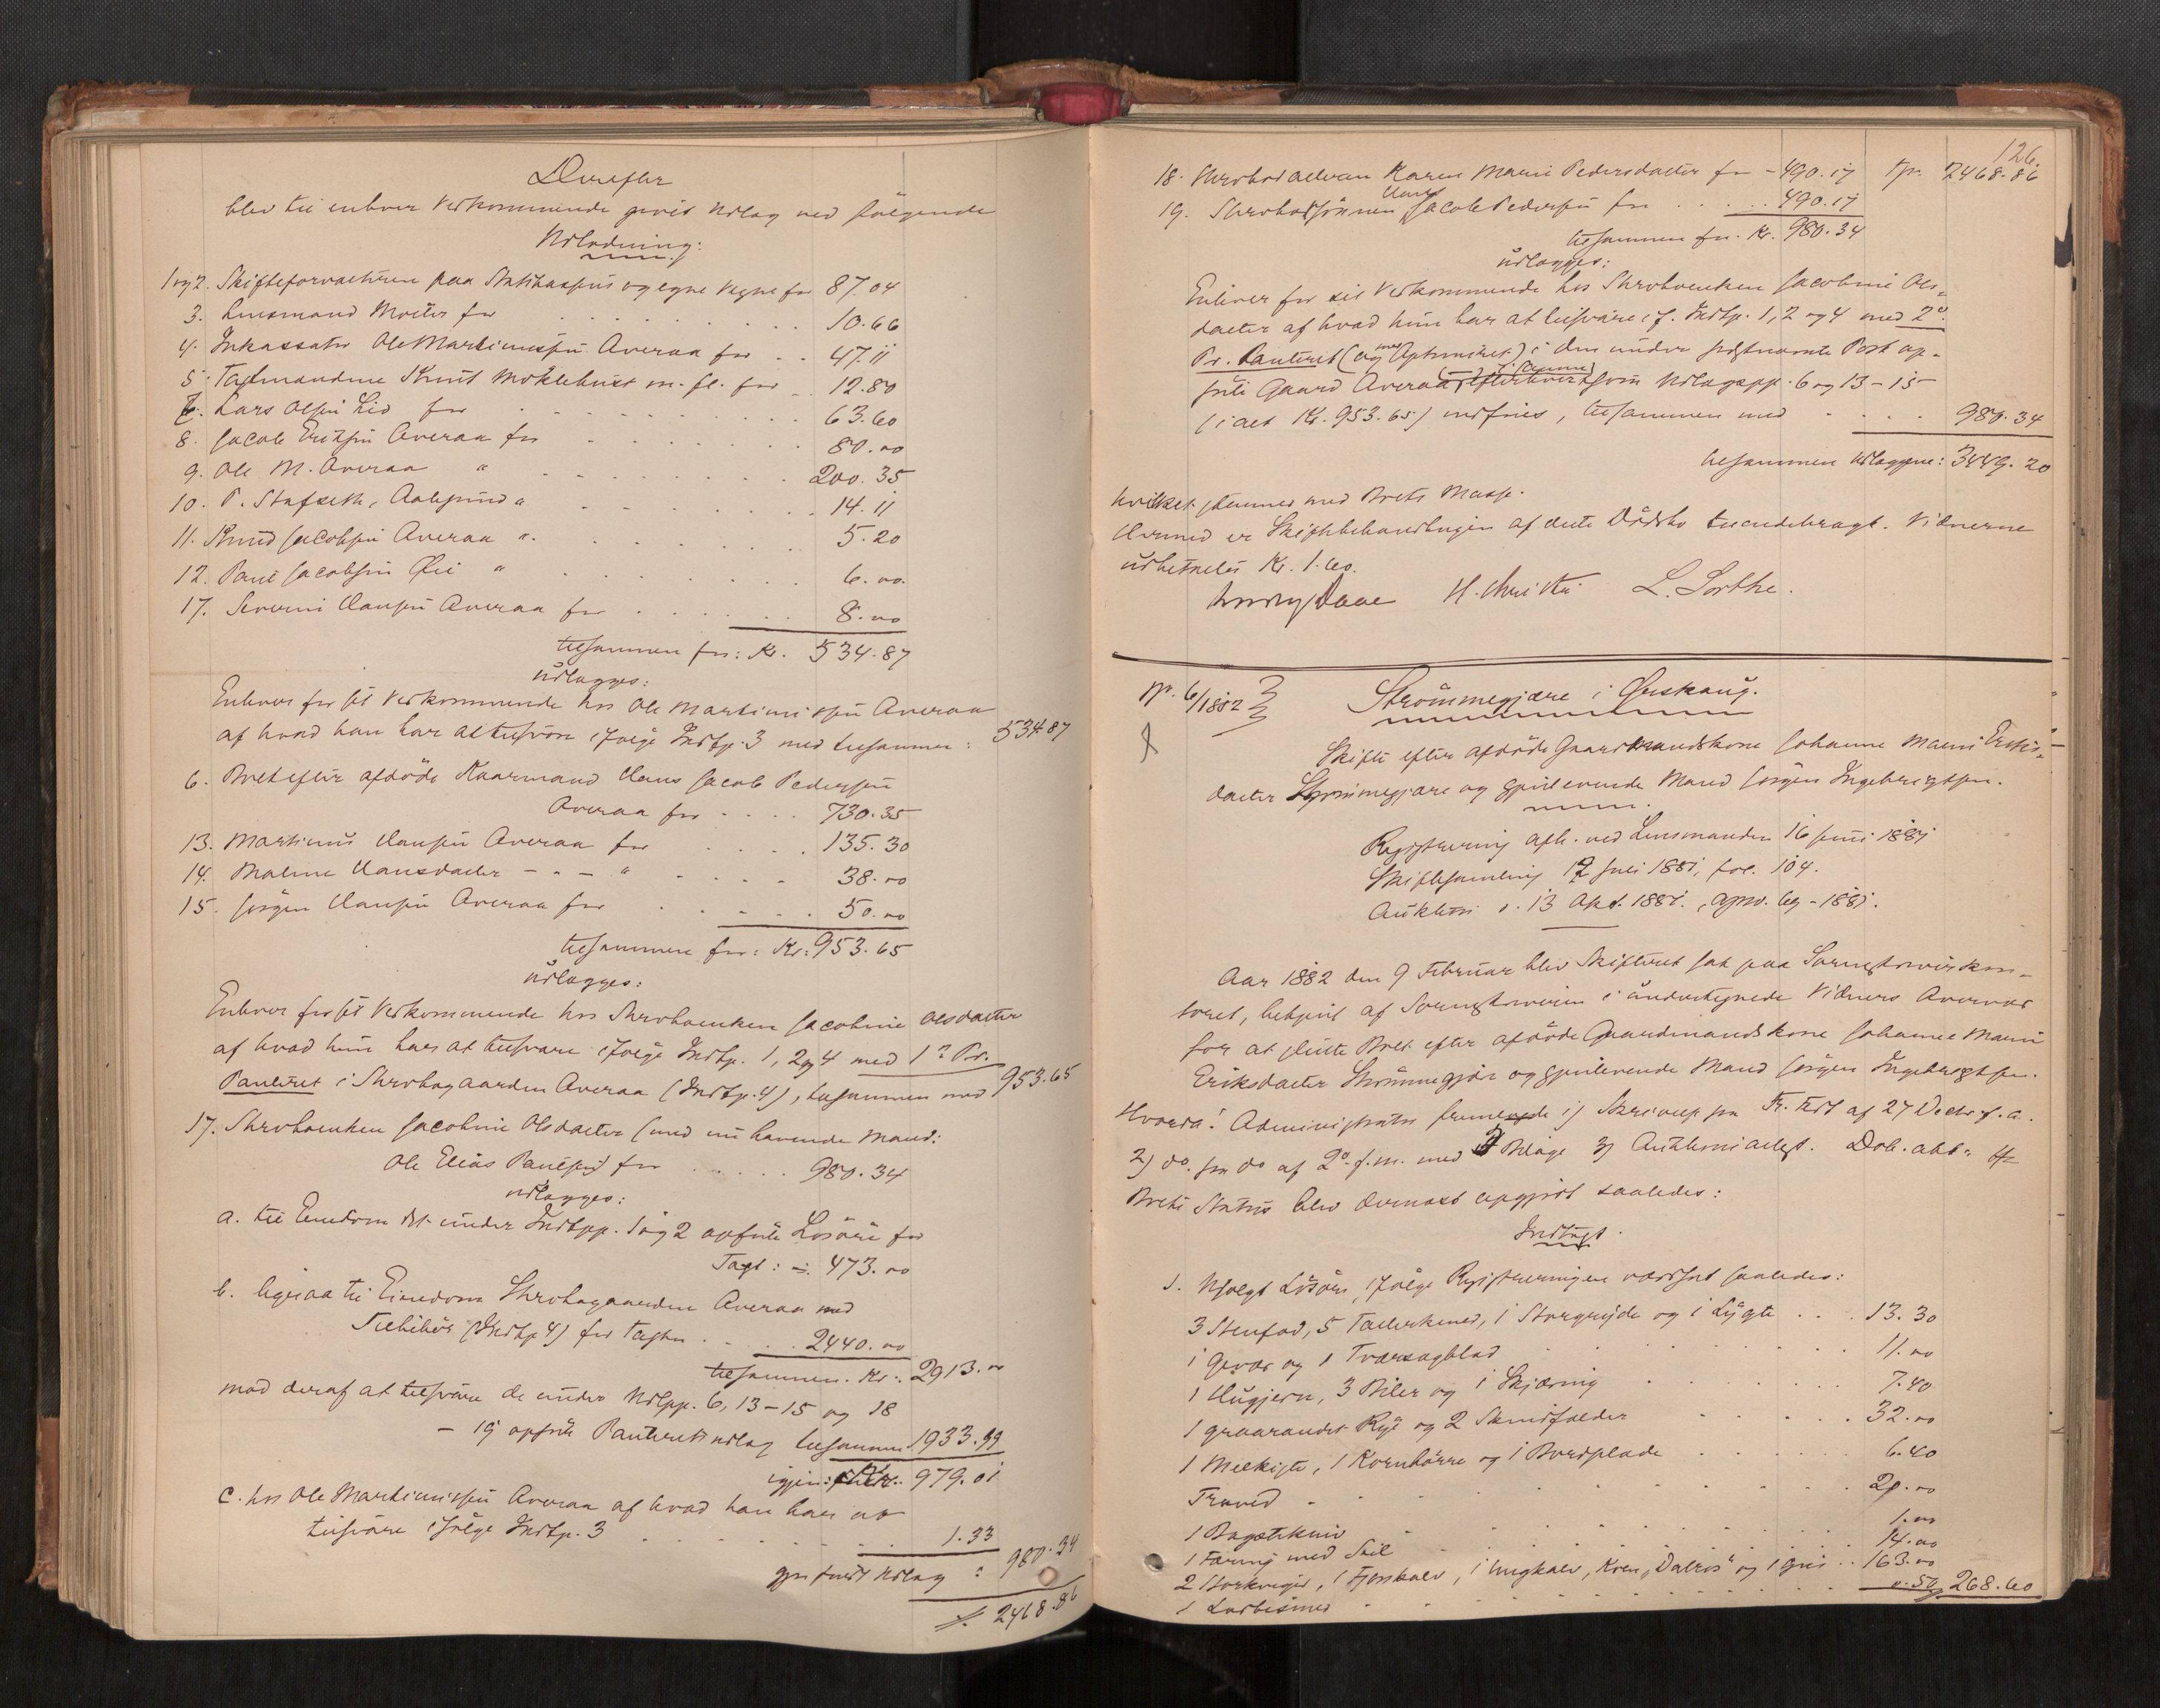 Derefter
blev til enhver Vedkommende gjort Udlæg ved følgende
Udlodning:
1 og 2. Skifteforvalteren paa Statskassens og egne Vegne for 87.04
3. Lensmand Moltu for 10.66
4. Inkassator Ole Martinussen Averaa for 47.11
5. Taxtmændene Knut Møklebust m. fl. for 12.80
7. Lars Olsen Lid for 63.60
8. Jacob Eriksen Averaa for 80.00
9. Ole M. Averaa " 200.35
10. P. Stafseth, Aalesund " 14.11
11. Knud Jacobsen Averaa " 5.20
12. Paul Jacobsen Øie " 6.00
17. Severin Hansen Averaa for 8.00
tilsammen for: Kr. 534.87
udlægges:
Enhver for sit Vedkommende hos Ole Martinussen Averaa
af hvad han har at tilsvare ifølge Indtp. 3 med tilsammen: 534 87
6. Boet efter afdøde Kaarmand Hans Jacob Pedersen
Averaa for 730.35
13. Martinus Hansen Averaa for 135.30
14. Malene Hansdatter - " - " 38.00
15. Jørgen Hansen Averaa for 50.00
tilsammen for: Kr. 953.65
udlægges:
Enhver for sit Vedkommende hos Stervboenken Jacobine Olsdatter
af hvad hun har at tilsvare ifølge Indtp. 1, 2 og 4 med 1ste Pr.
Panteret i Stervbogaarden Averaa (Indtp. 4), tilsammen med 953.65
17. Stervboenken Jacobine Olsdatter (med nu havende Mand:
Ole Elias Paulsen) for 980.34
udlægges:
a. til Eiendom det under Indtpp. 1 og 2 opførte Løsøre for
Taxt: 473.00
b. ligesaa til Eiendom Stervbogaarden Averaa med
Tilbehør (Indtp 4) for Taxten 2440.00
tilsammen Kr. 2913.00
mod deraf at tilsvare de under Udlpp. 6, 13-15 og 18
- 19 opførte Panteretsudlæg tilsammen 1933.99
igjen: Kr. 979.01
c. hos Ole Martinussen Averaa af hvad han har at
tilsvare ifølge Indtp. 3 1.33
gjør fuldt Udlæg: 980.34
2468.86
126.
18. Stervbodatteren Karen Marie Pedersdatter for - 490.17 Tpr. 2468.86
19. Stervbosønnen Hans Jacob Pedersen for 490.17
tilsammen for Kr. 980.34
udlægges:
Enhver for sit Vedkommende hos Stervboenken Jacobine Ols-
datter af hvad hun har at tilsvare if. Indtp. 1, 2 og 4 med 2den
Pr. Panteret i den under sidstnævnte Post op-
førte Gaard Averaa Udlægspp. 6 og 13-15
(i alt Kr. 953.65) indfries, tilsammen med 980.34
tilsammen Udlæggene: 3449.20
hvilket stemmer med Boets Masse.
Hermed er Skiftebehandlingen af dette Dødsbo tilendebragt. Vidnerne
udbetaltes Kr. 1.60.
Daae H. Christie L. Sorthe.
No. 6/1882 Strømmegjære i Ørskoug.
Skifte efter afdøde Gaardmandskone Johanne Marie Eriks-
datter Strømmegjære og gjenlevende Mand Jørgen Ingebrigtsen.
Registrering afh. ved Lensmanden 16 Juni 1881
Skiftesamling 12 Juli 1881, fol. 104.
Auktion d. 13 Okt. 1881.
Aar 1882 den 9 Februar blev Skifteret sat paa Sorenskriverkon-
toret, betjent af Sorenskriveren i undertegnede Vidners Overvær
for at slutte Boet efter afdøde Gaardmandskone Johanne Marie
Eriksdatter Strømmegjære og gjenlevende Mand Jørgen Ingebrigtsen.
Hvorda: Administrator fremlagde 1) Skrivelse fra Fr. Fdt af 27 Decbr f. a.
2) do. fra do af 2den f. m. med Bilage 3) Auktionsudsgt.
Boets Status blev dernæst opgjort saaledes:
Indtægt.
1. Usolgt Løsøre, ifølge Registreringen værdsat saaledes:
3 Stenfad, 5 Tallerkener, 1 Storgryde og 1 Lygte 13.30
1 Gevær og 1 Tværsagblad 11.00
1 Hugjern, 3 Biler og 1 Skjæring 7.40
1 graarandet Rye og 2 Skindfælder 32.00
1 Melkiste, 1 Kornbørre og 1 Bordplade 6.40
Træved 20.00
1 Bogstekniv 1.00
1 Færing med Seil 14.00
2 Storkviger, 1 Fjorskalv, 1 Ungkalv, Koen "Dalros" og 1 Gris 163.00
1 Lodbismer 0.50 268.60